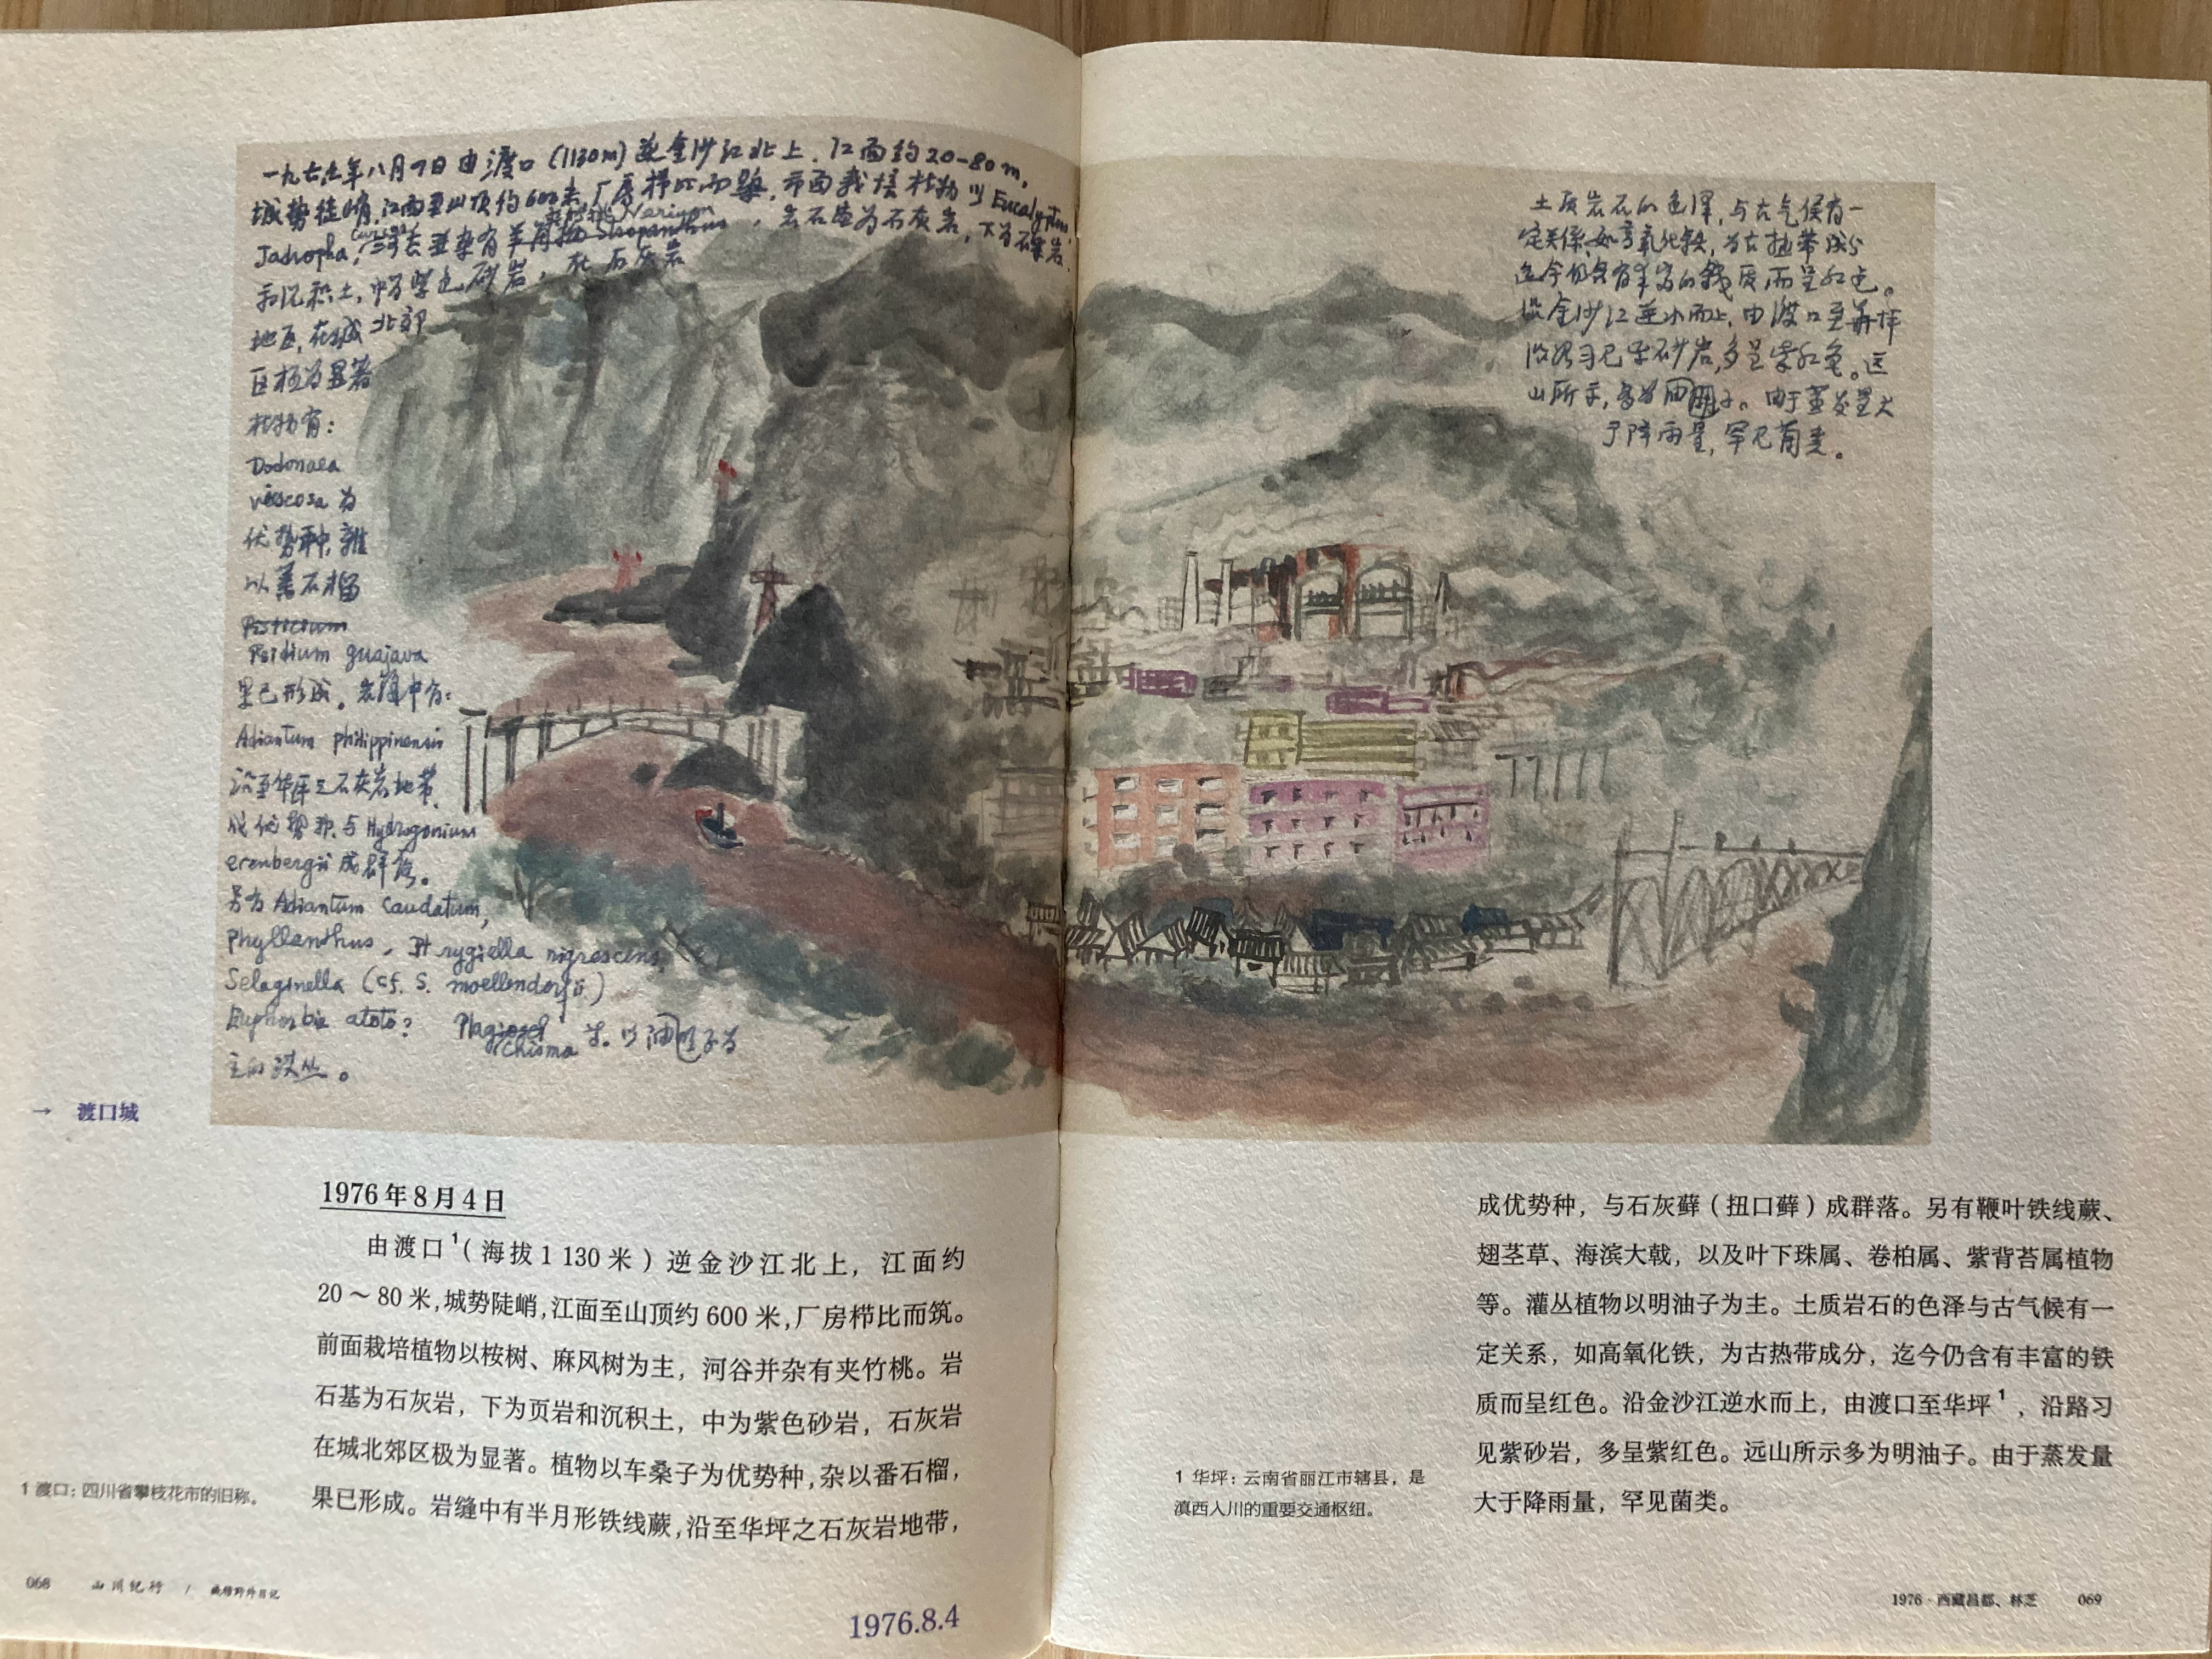 一九七六年八月四日由渡口(1130m)逆金沙江北上.江面约20-80m,
城势徒峭,江面至山顶约600米,厂房栉比而 市面栽培植物以Eucalyptus,
Jadropha, 有羊角拗 Stropanthus
Nerium
,岩石基为石灰岩,下为 岩
和沉积土,中为紫色砂岩,在石灰岩
地区,在城北郊
区极为显著
植物有:
Dodonaea
viscosa为
优势种,杂
以番石榴
Psidium guajava
果已形成。岩缝中有:
Adiantum philippinensis
沿至华坪之石灰岩地带,
成优势种,与Hydrogonium
erenbergii成群落。
另有Adiantum caudatum,
phyllanthus, Pt rygiella nigrescens,
Selaginella (cf. S. moellendorfii)
Euphorbia atoto? Plagiochisma 等.以 子为
主的灌丛。
土质岩石的色泽,与古气候有一
定关係,如高氧化铁,为古热带成分
迄今仍含有丰富的铁质而呈红色。
沿金沙江逆水而上,由渡口至华坪
沿路习见紫砂岩,多呈紫红色。远
山所示,多为 子。由于蒸发量大
于降雨量,罕见菌类。
→ 渡口城
1976年8月4日
由渡口¹(海拔1 130米)逆金沙江北上,江面约
20～80米,城势陡峭,江面至山顶约600米,厂房栉比而筑。
前面栽培植物以桉树、麻风树为主,河谷并杂有夹竹桃。岩
石基为石灰岩,下为页岩和沉积土,中为紫色砂岩,石灰岩
在城北郊区极为显著。植物以车桑子为优势种,杂以番石榴,
果已形成。岩缝中有半月形铁线蕨,沿至华坪之石灰岩地带,
1 渡口:四川省攀枝花市的旧称。
068 山川纪行 / 臧穆野外日记
1976.8.4
成优势种,与石灰藓(扭口藓)成群落。另有鞭叶铁线蕨、
翅茎草、海滨大戟,以及叶下珠属、卷柏属、紫背苔属植物
等。灌丛植物以明油子为主。土质岩石的色泽与古气候有一
定关系,如高氧化铁,为古热带成分,迄今仍含有丰富的铁
质而呈红色。沿金沙江逆水而上,由渡口至华坪¹,沿路习
见紫砂岩,多呈紫红色。远山所示多为明油子。由于蒸发量
大于降雨量,罕见菌类。
1 华坪:云南省丽江市辖县,是
滇西入川的重要交通枢纽。
1976 · 西藏昌都、林芝 069